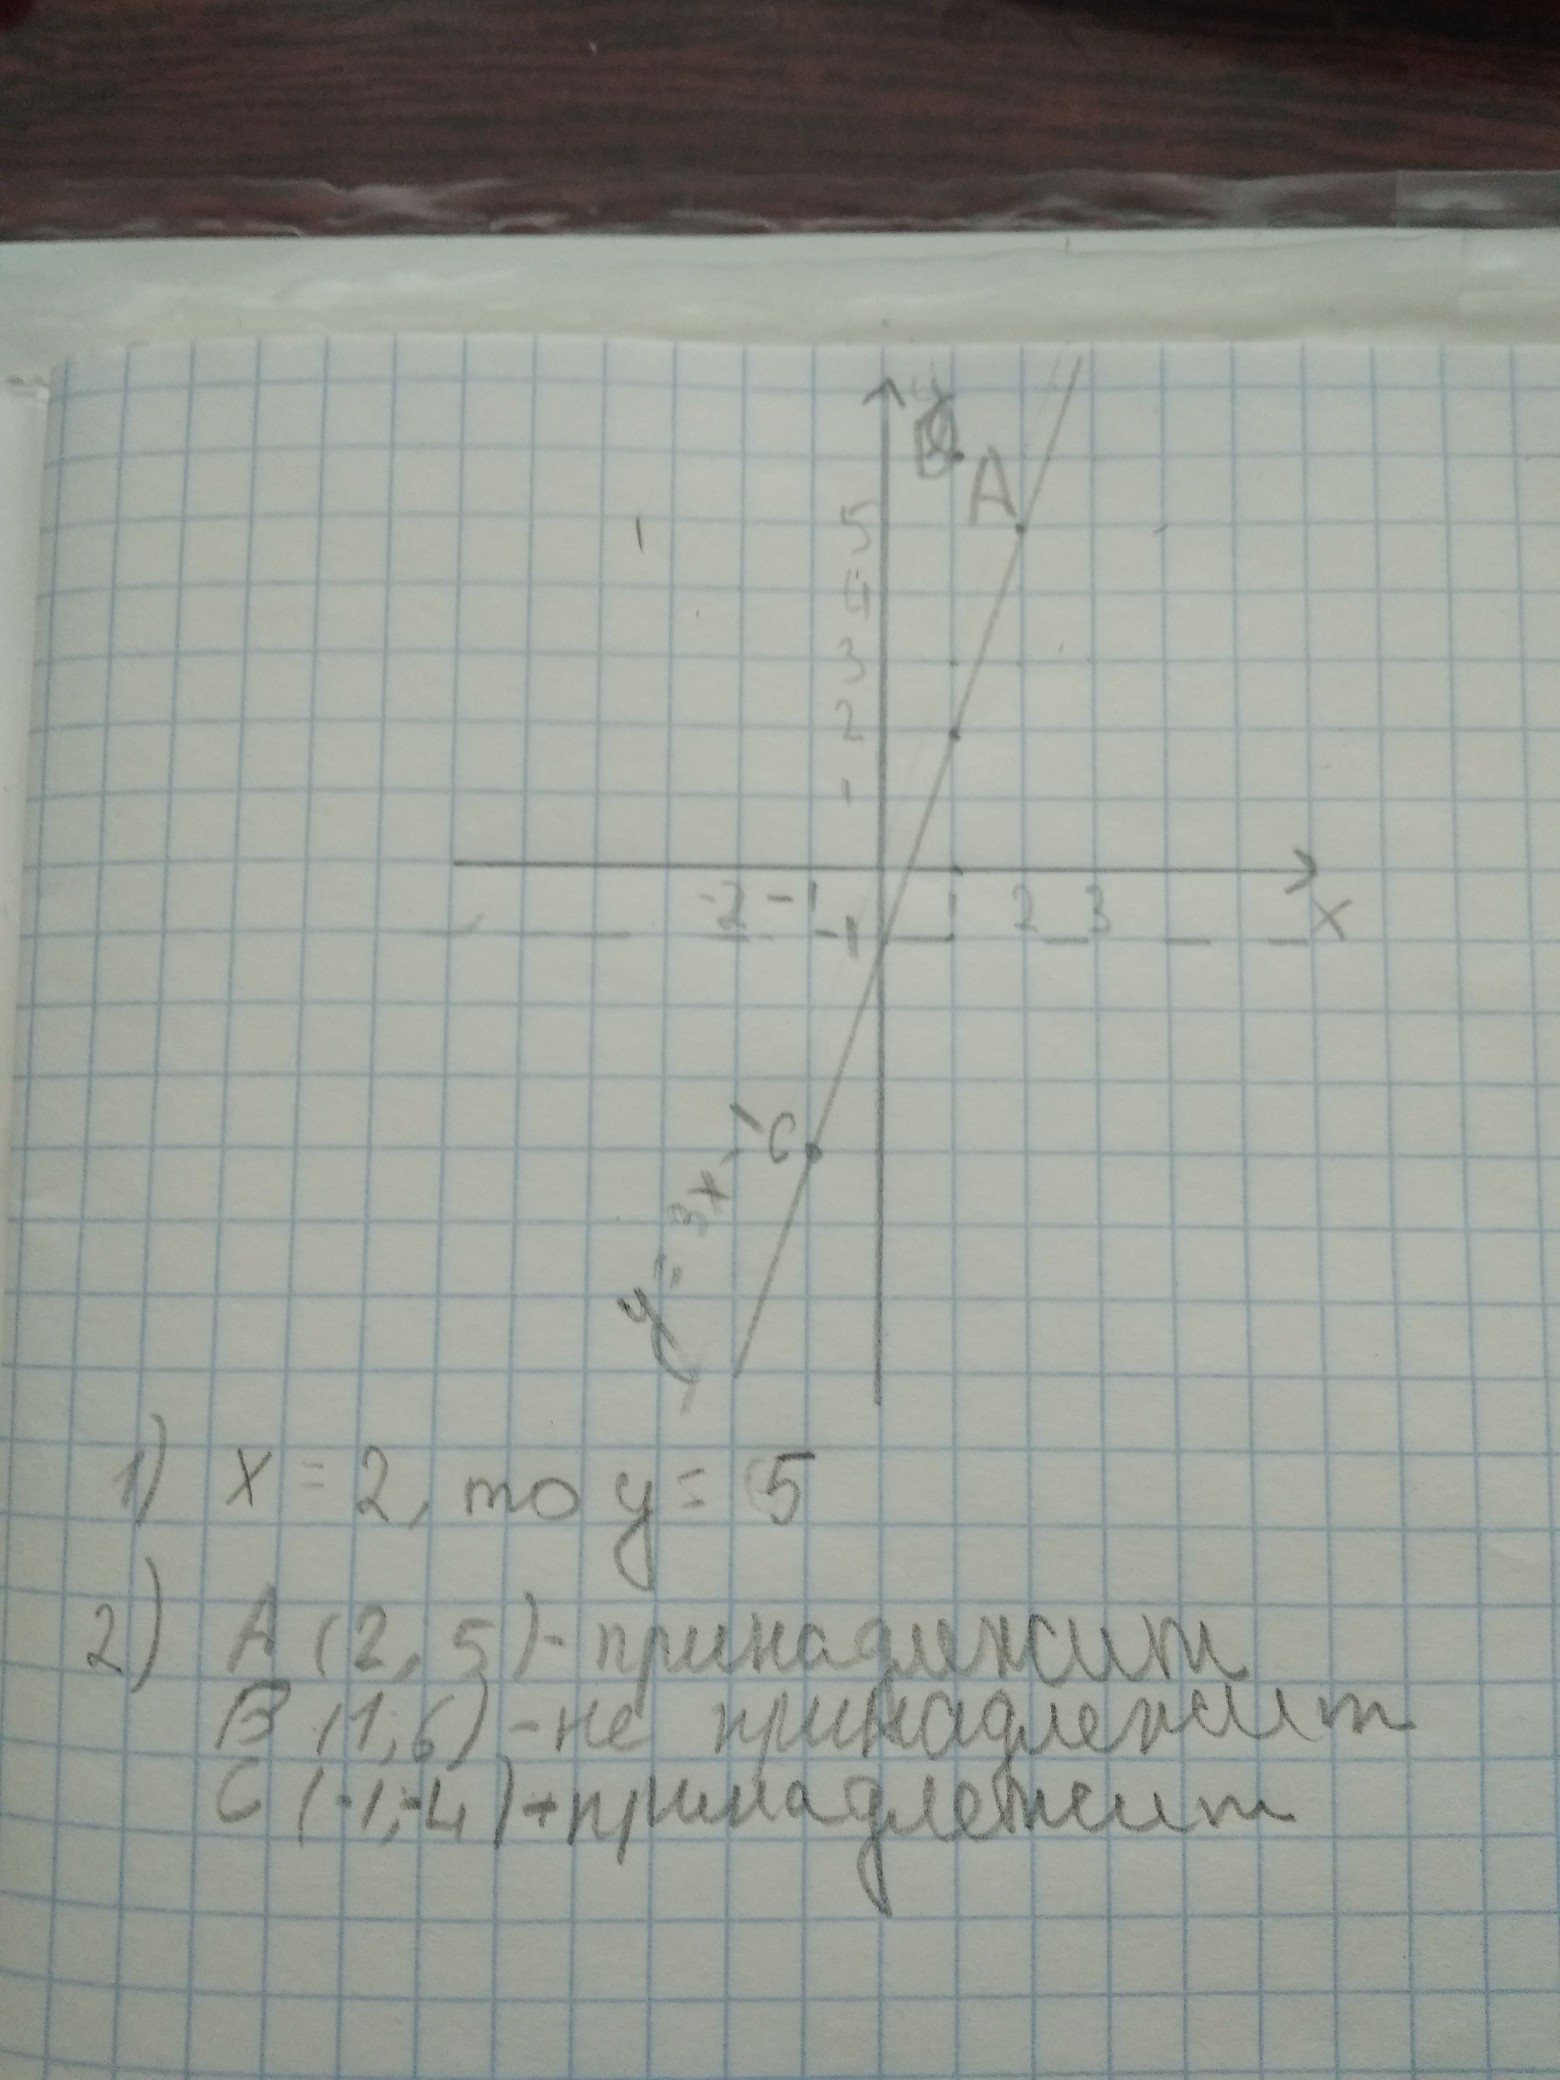 y
B
A
5
4
3
2
1
-2 -1 1 2 3
-1
x
C
y = 3x - 1
1) x = 2, то y = 5
2) A (2, 5) - принадлежит
B (1, 6) - не принадлежит
C (-1, -4) - принадлежит